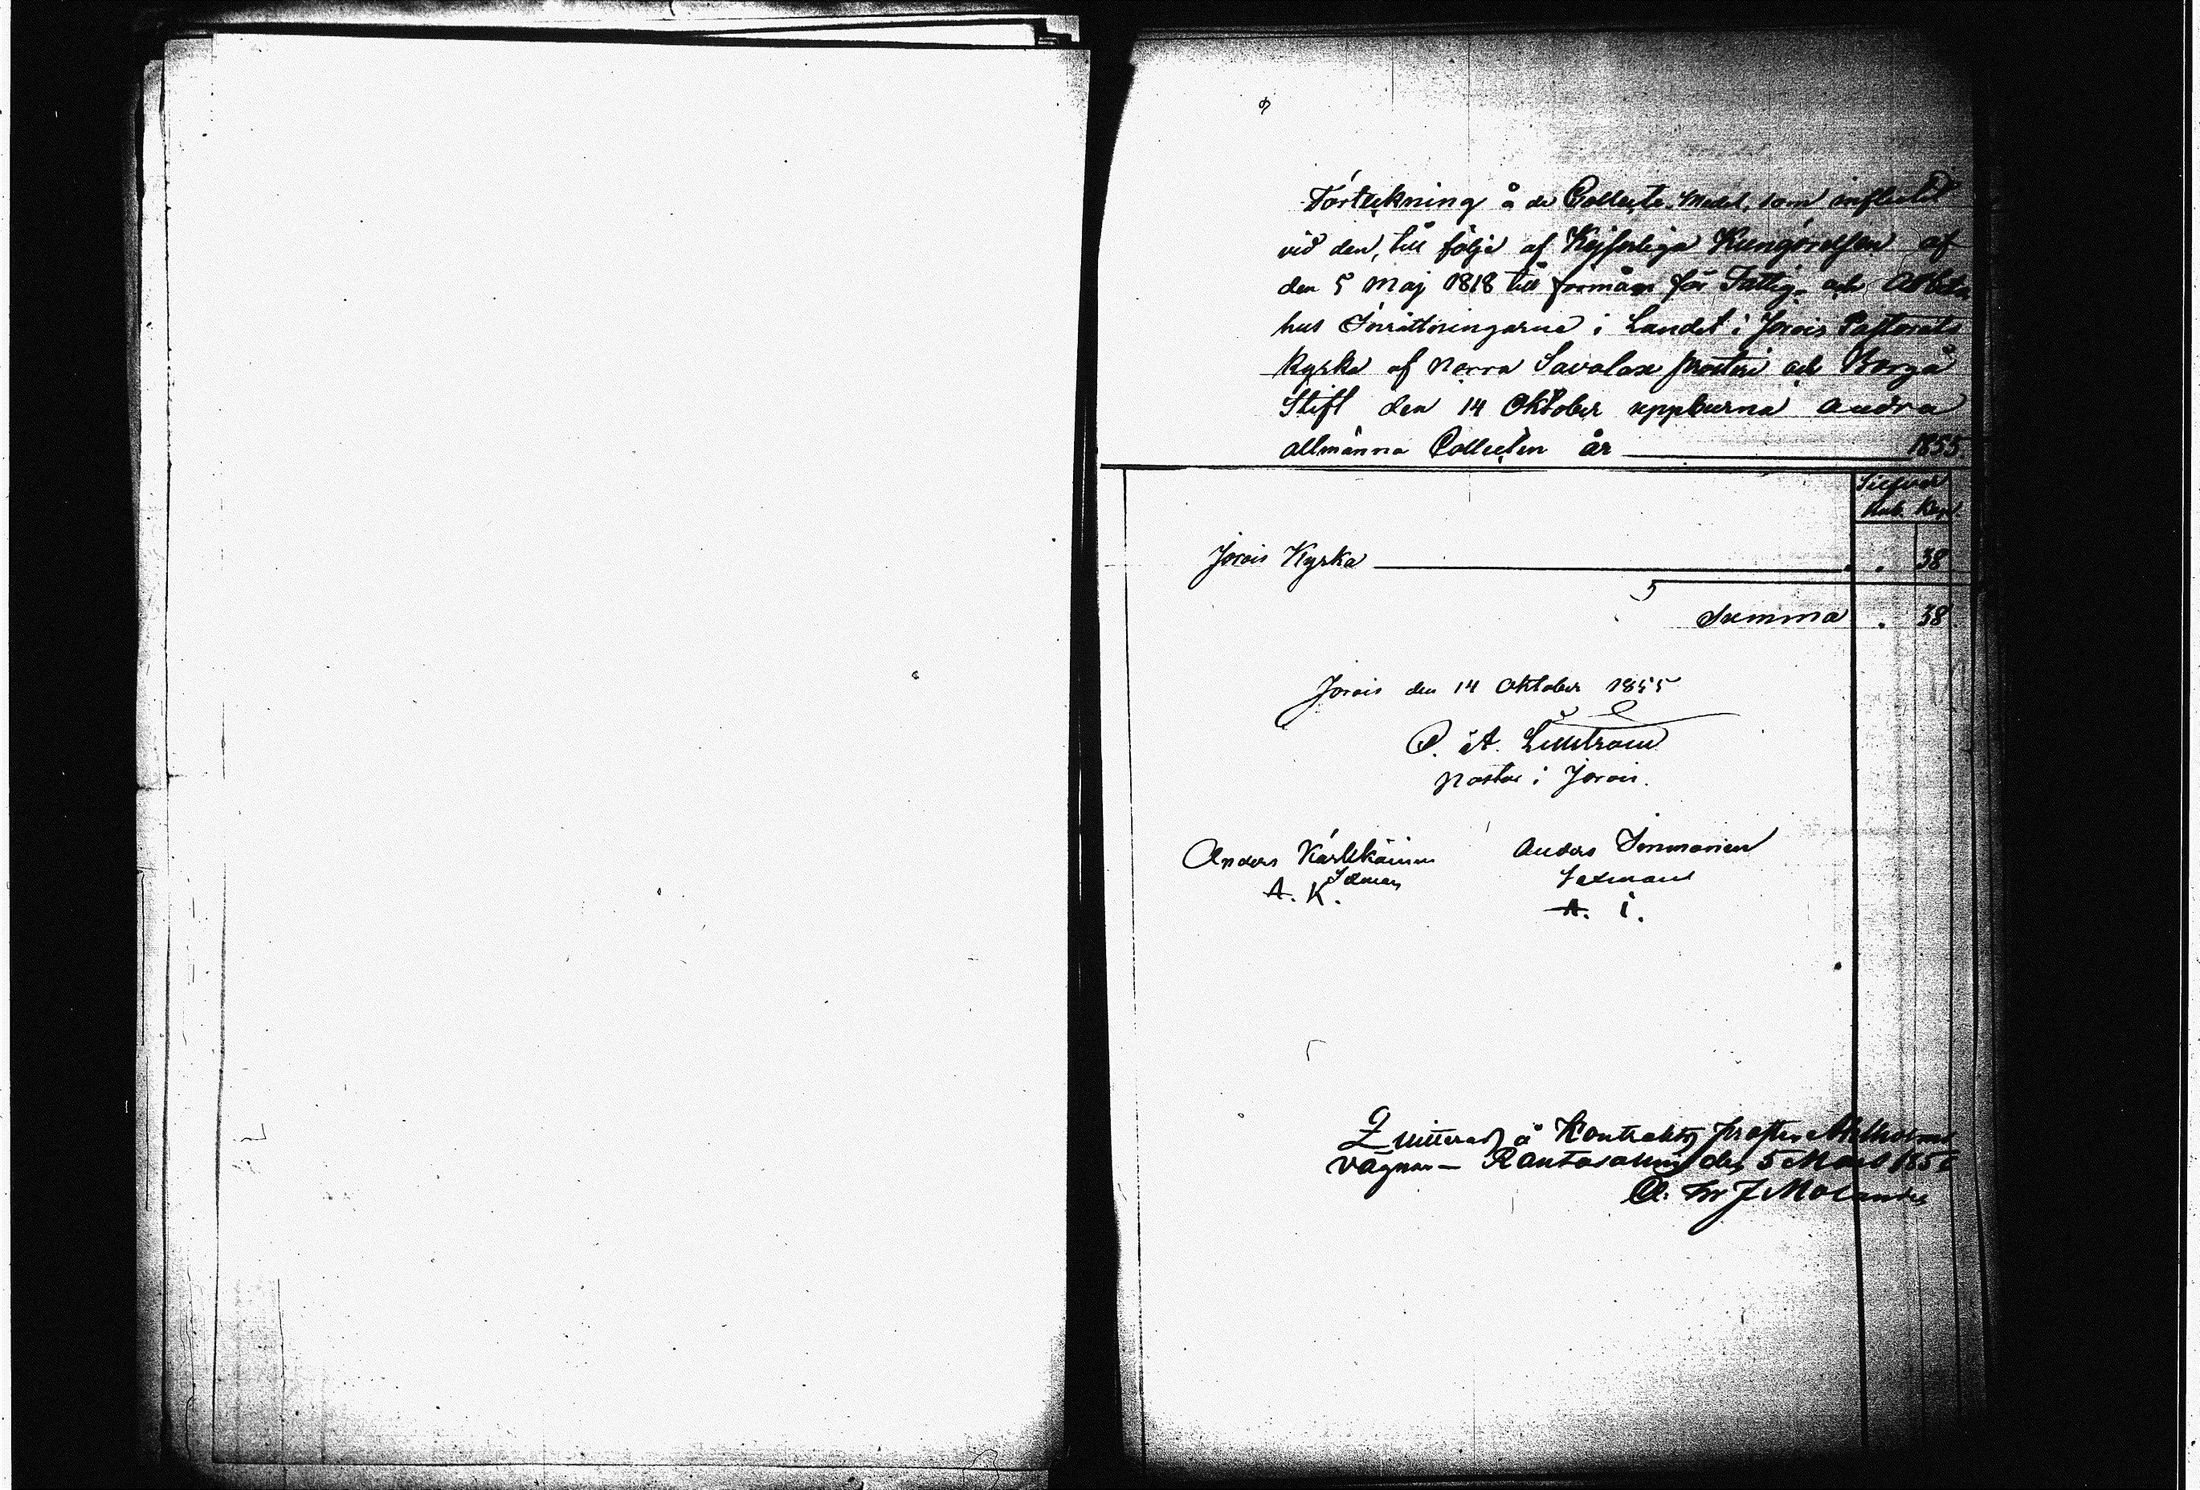 Förteckning å de Collecte-Medel, som influtit
vid den, till följe af Kejserliga Kungörelsen af
den 5 Maj 1818 till förmån för Fattig- och Arbets
hus Inrättningarne i Landet i Jorois Pastorats
Kyrka af Norra Savolax prosteri och Borgå
Stift den 14 Oktober uppburna Andra
allmänna Collecten år 1855.
Silfver
Rub. Kop.
Jorois Kyrka . 38
Summa . 38.
Jorois den 14 Oktober 1855
P. A.
Pastor i Jorois.
Anders Kärkkäinen Anders Immonen
Sexman Sexman
A. K. A. I.
Quitteras å Kontrakts Prosten
vägnar — Rantasalmi den 5 Mars 185
J Molander